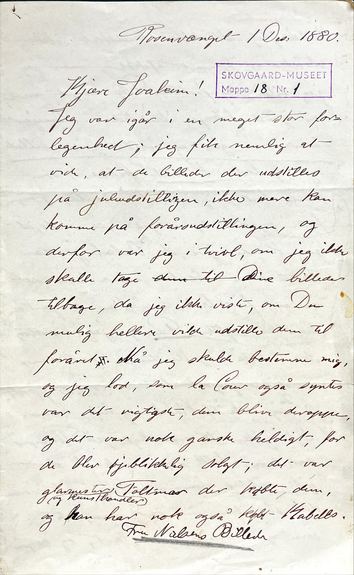 Rosenvænget 1 Des. 1880.
SKOVGAARD-MUSEET
Mappe 18 Nr. 1
Kjære Joakim!
Jeg var igår i en meget stor for-
legenhed; jeg fik nemlig at
vide, at de billeder der udstilles
på juleudstillingen, ikke mere kan
komme på forårsudstillingen, og
derfor var jeg i tvivl, om jeg ikke
skulle tage dem til Dine billeder
tilbage, da jeg ikke viste, om Du
mulig hellere vilde udstille dem til
foråret. Nå jeg skulde bestemme mig,
og jeg lod, som la Cour også syntes
var det rigtigste, dem blive deroppe,
og det var nok ganske heldigt, for
de blev øjeblikkelig solgt; det var
glarmester Valtmar der købte dem,
og Kunsthandler
og han har nok også købt Isabellas.
Fru Nielsens Billede